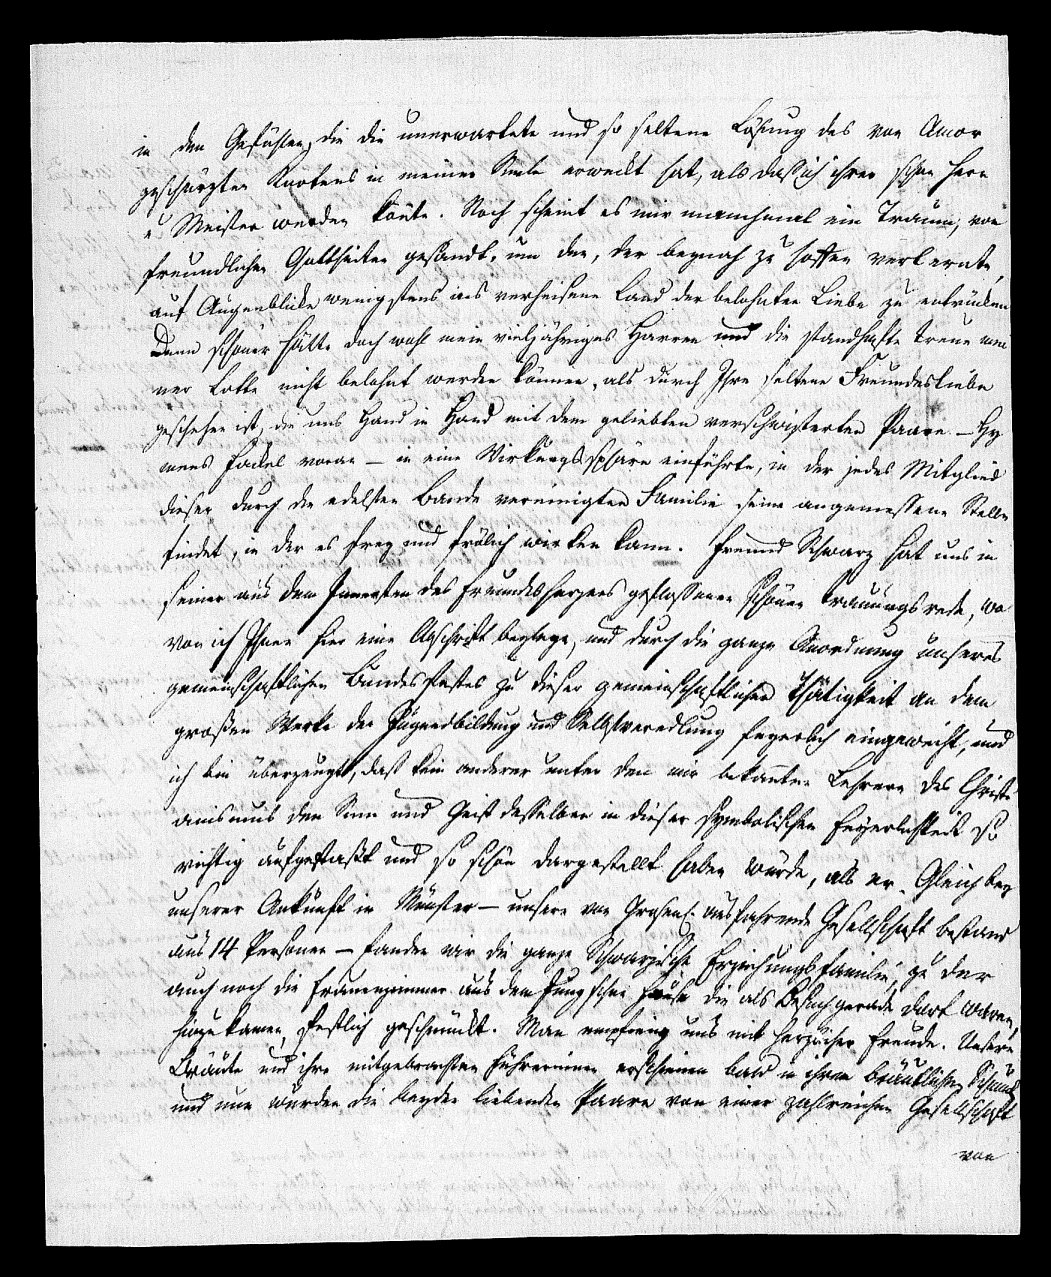 in den Gefühlen, die die unerwartete und so seltene Lösung des von Amor
geschürzten Knotens in meiner Seele erweckt hat, als daß ich ihrer schon Herr
u Meister werden köñte. Noch scheint es mir manchmal ein Traum, von
freundlichen Gottheiten gesandt, um den, der beynah zu hoffen verlernte,
auf Augenblicke wenigstens ins verheisene Land der belohnten Liebe zu entrücken
Denn schöner hätte doch wohl mein vieljähriges Harren und die standhafte Treue mei
ner Lotte nicht belohnt werden können, als durch Ihre seltene Freundesliebe
geschehen ist, die uns Hand in Hand mit dem geliebten verschwisterten Paare – Hy
mens Fackel voran – in eine Wirkungssphäre einführte, in der jedes Mitglied
dieser durch die edelsten Bande vereinigten Familie seine angemessene Stelle
findet, in der es frey und frölich wirken kann. Freund Schwarz hat uns in
seiner aus dem Innersten des Freundesherzens geflossenen schönen Trauungsrede, wo
von ich Ihnen hier eine Abschrift beylege, und durch die ganze Anordnung unseres
gemeinschaftlichen Bundesfestes zu dieser gemeinschaftlichen Thätigkeit an dem
großen Werke der Jugendbildung und Selbstveredlung feyerlich eingeweiht, und
ich bin überzeugt, daß kein anderer unter den mir bekañten Lehrern des Christi
anismus den Sinn und Geist desselben in dieser symbolischen Feyerlichkeit so
richtig aufgefaßt und so schön dargestellt haben würde, als er. Gleich bey
unserer Ankunft in Münster – unsere von ausfahrende Gesellschaft bestand
aus 14 Personen – fanden wir die ganze Schwarzische Erziehungsfamilie, zu der
auch noch die Frauenzimmer aus dem Hause die als Besuch gerade dort waren,
hinzu kamen, festlich geschmückt. Man empfieng uns mit herzlicher Freude. Unsere
Bräute und ihre mitgebrachten Führerinnen erschienen bald in ihrem bräutlichen Schmuck
und nun wurden die beyden liebenden Paare von einer zahlreichen Gesellschaft
von